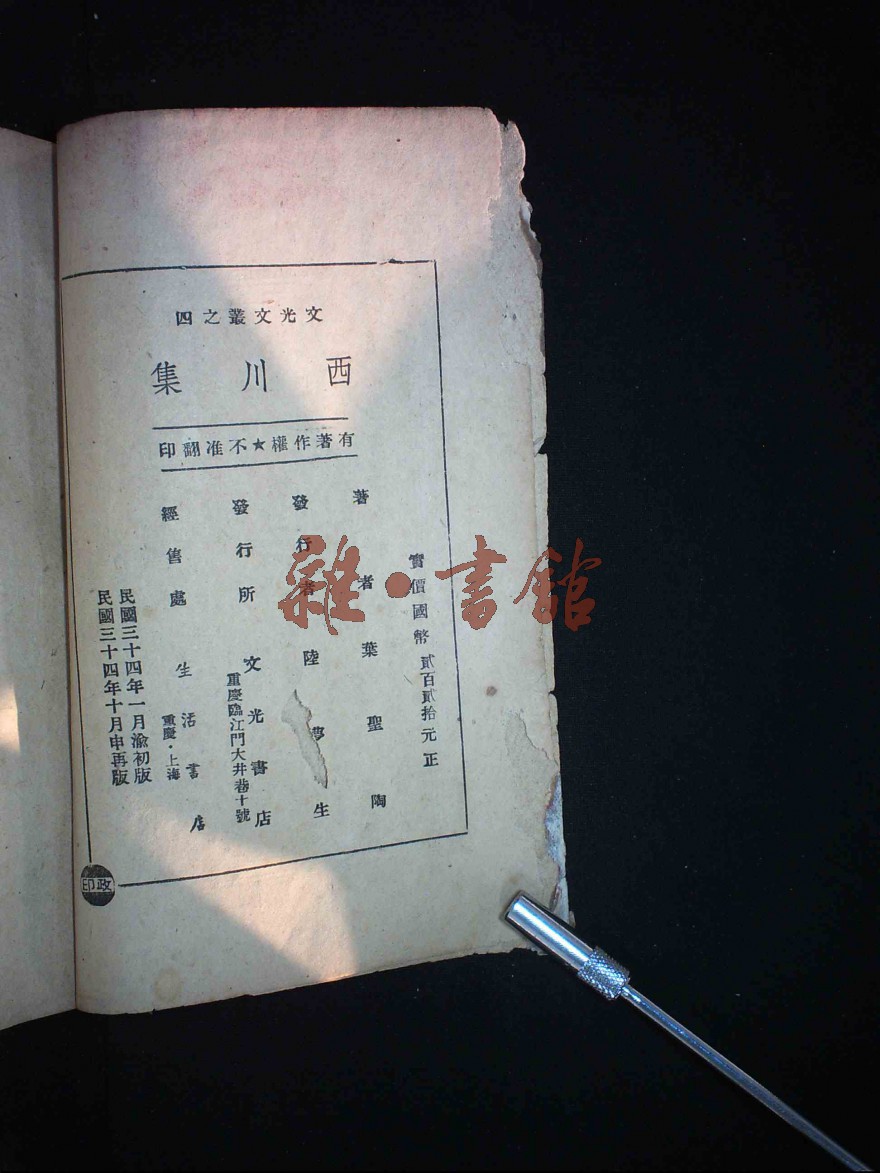 文光文叢之四
西川集
有著作權★不准翻印
實價國幣貳百貳拾元正
著者葉聖陶
發行者陸夢生
發行所文光書店
重慶臨江門大井巷十號
經售處生活書店
重慶·上海
民國三十四年一月渝初版
民國三十四年十月申再版
政印
雜·書館